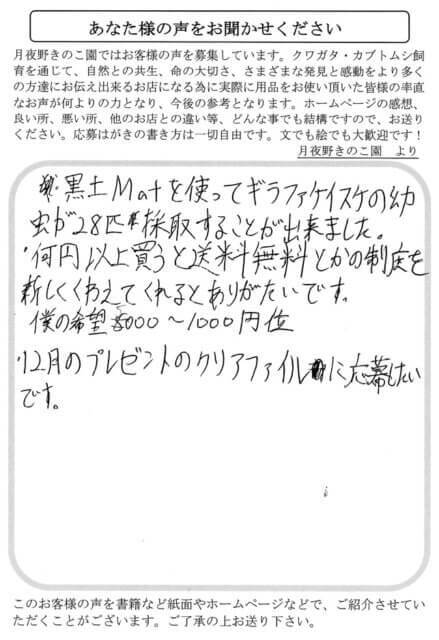 あなた様の声をお聞かせください
月夜野きのこ園ではお客様の声を募集しています。クワガタ・カブトムシ飼
育を通じて、自然との共生、命の大切さ、さまざまな発見と感動をより多く
の方達にお伝え出来るお店になる為に実際に用品をお使い頂いた皆様の率直
なお声が何よりの力となり、今後の参考となります。ホームページの感想、
良い所、悪い所、他のお店との違い等、どんな事でも結構ですので、お送り
ください。応募はがきの書き方は一切自由です。文でも絵でも大歓迎です！
月夜野きのこ園　より
黒土Matを使ってギラファケイスケの幼
虫が28匹採取することが出来ました。
・何円以上買うと送料無料とかの制度を
新しくくわえてくれるとありがたいです。
僕の希望 5000～1000円位
・12月のプレゼントのクリアファイルに応募したい
です。
このお客様の声を書籍など紙面やホームページなどで、ご紹介させてい
ただくことがございます。ご了承の上お送り下さい。